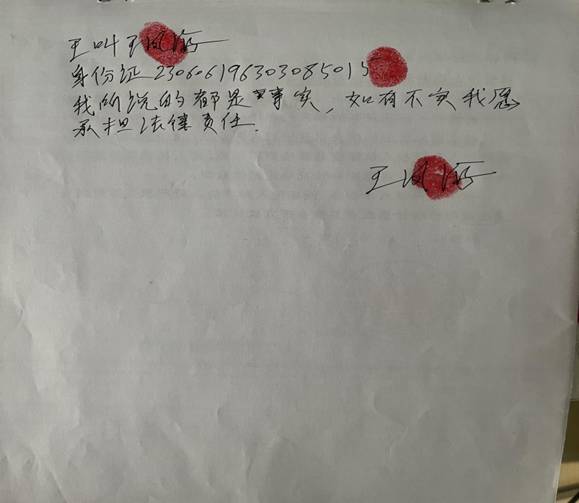 王叫王凤海
身份证230606196303085015
我所说的都是事实，如有不实我愿
承担法律责任.
王凤海